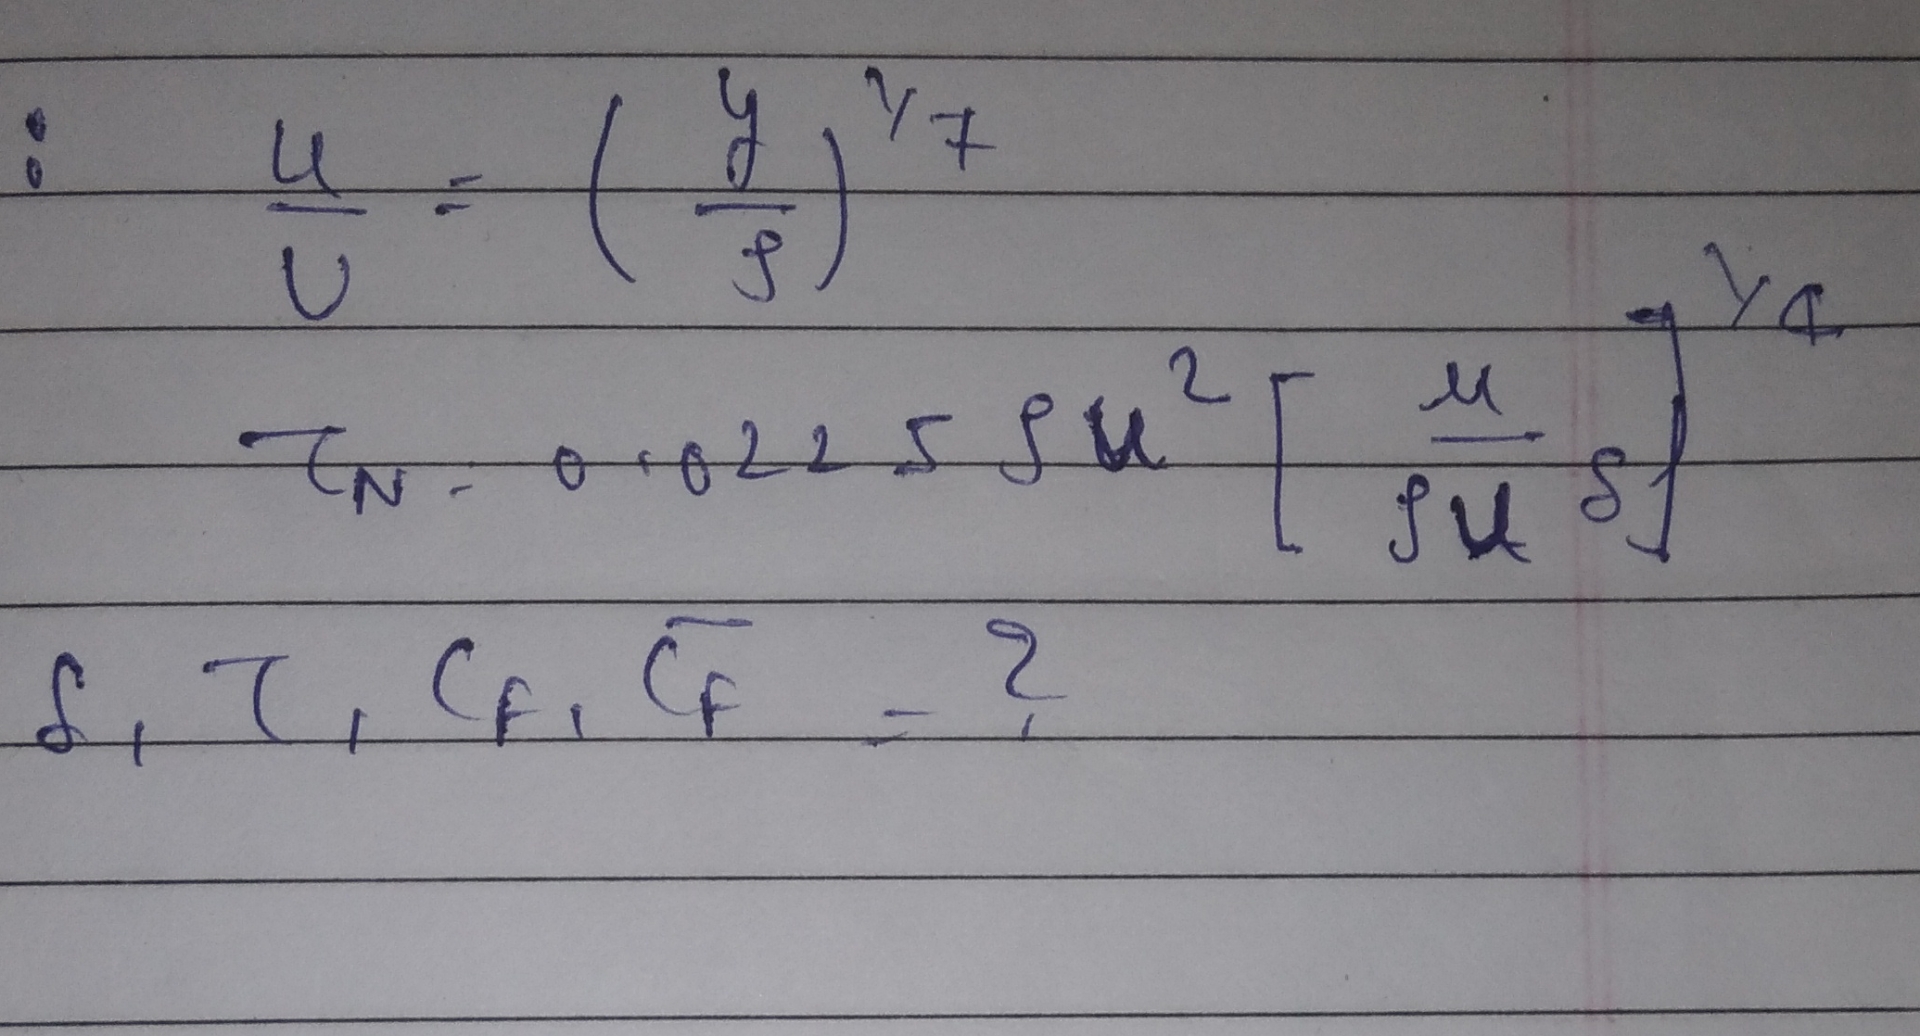 : u/U = (y/δ)^1/7
τN = 0.0225 ρu² [μ/ρu δ]^1/4
δ, τ, CF, C̄F = ?